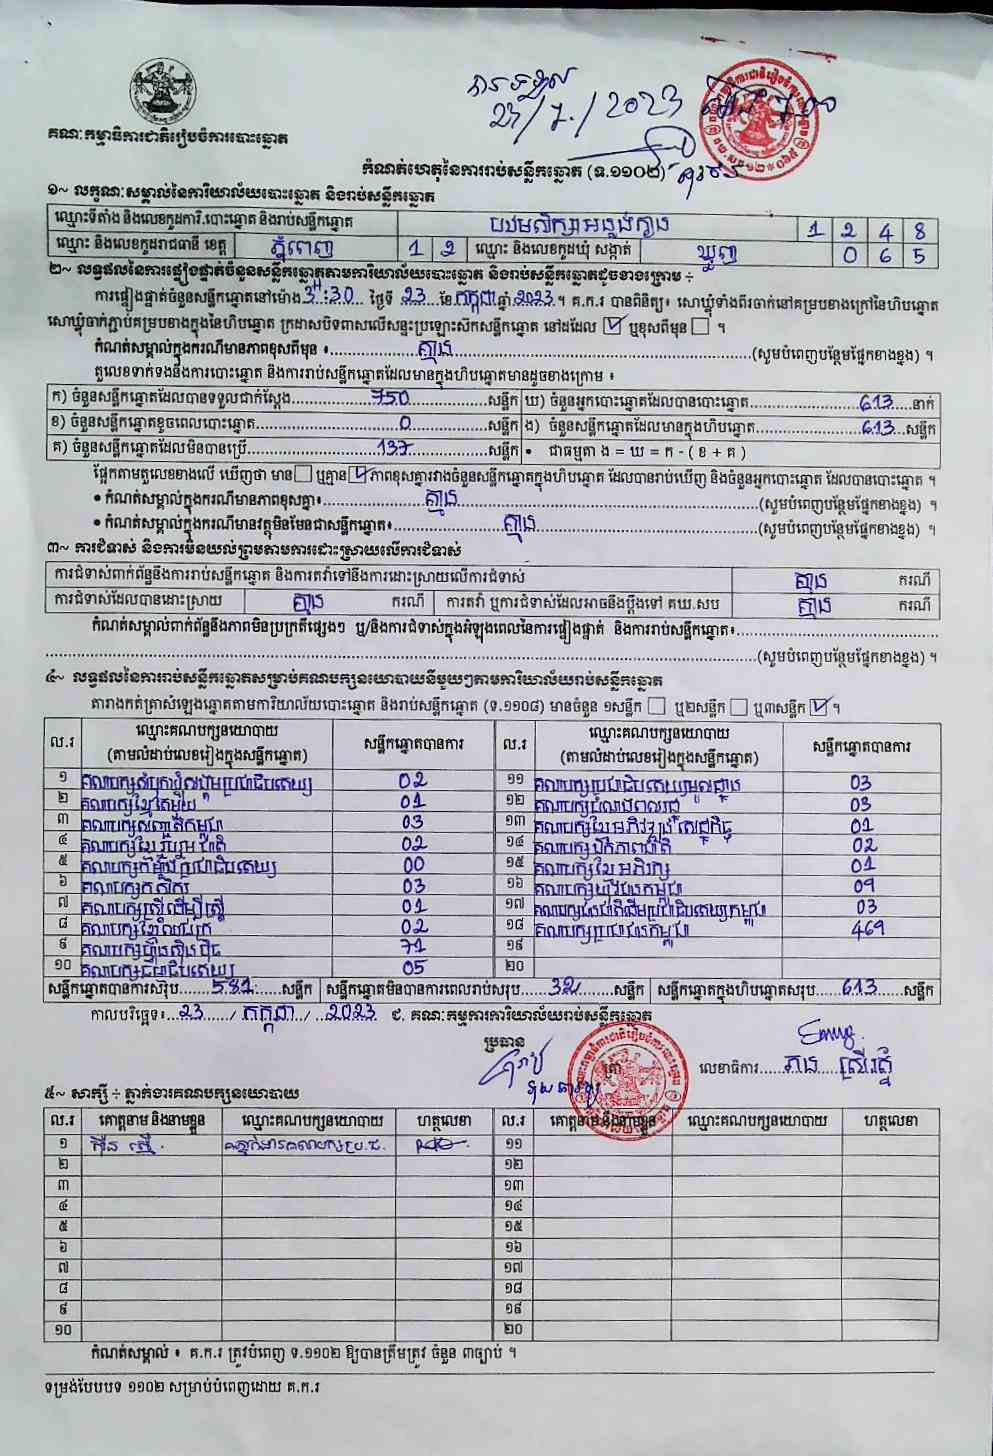 បានទទួល
23/7/2023
គណៈកម្មាធិការជាតិរៀបចំការបោះឆ្នោត
កំណត់ហេតុនៃការរាប់សន្លឹកឆ្នោត (ទ.១១០២)
១~ លក្ខណៈសម្គាល់នៃការិយាល័យបោះឆ្នោត និងរាប់សន្លឹកឆ្នោត
ឈ្មោះទីតាំង និងលេខកូដការិ.បោះឆ្នោត និងរាប់សន្លឹកឆ្នោត បឋមសិក្សាអន្លង់ក្ងាន 1 2 4 8
ឈ្មោះ និងលេខកូដរាជធានី ខេត្ត ភ្នំពេញ 1 2 ឈ្មោះ និងលេខកូដឃុំ សង្កាត់ ឃ្មួញ 0 6 5
២~ លទ្ធផលនៃការផ្ទៀងផ្ទាត់ចំនួនសន្លឹកឆ្នោតតាមការិយាល័យបោះឆ្នោត និងរាប់សន្លឹកឆ្នោតដូចខាងក្រោម ÷
ការផ្ទៀងផ្ទាត់ចំនួនសន្លឹកឆ្នោតនៅម៉ោង 3:30 ថ្ងៃទី 23 ខែ កក្កដា ឆ្នាំ 2023 ។ គ.ក.រ បានពិនិត្យ៖ សោឃ្មុំទាំងពីរចាក់នៅគម្របខាងក្រៅនៃហិបឆ្នោត
សោឃ្មុំចាក់ភ្ជាប់គម្របខាងក្នុងនៃហិបឆ្នោត ក្រដាសបិទពាសលើសន្ទះប្រឡោះសឹកសន្លឹកឆ្នោត នៅដដែល ☑ ឬខុសពីមុន ☐ ។
កំណត់សម្គាល់ក្នុងករណីមានភាពខុសពីមុន ៖ គ្មាន (សូមបំពេញបន្ថែមផ្នែកខាងខ្នង) ។
តួលេខទាក់ទងនឹងការបោះឆ្នោត និងការរាប់សន្លឹកឆ្នោតដែលមានក្នុងហិបឆ្នោតមានដូចខាងក្រោម ៖
ក) ចំនួនសន្លឹកឆ្នោតដែលបានទទួលជាក់ស្តែង 750 សន្លឹក ឃ) ចំនួនអ្នកបោះឆ្នោតដែលបានបោះឆ្នោត 613 នាក់
ខ) ចំនួនសន្លឹកឆ្នោតខូចពេលបោះឆ្នោត 0 សន្លឹក ង) ចំនួនសន្លឹកឆ្នោតដែលមានក្នុងហិបឆ្នោត 613 សន្លឹក
គ) ចំនួនសន្លឹកឆ្នោតដែលមិនបានប្រើ 137 សន្លឹក • ជាធម្មតា ង = ឃ = ក - ( ខ + គ )
ផ្អែកតាមតួលេខខាងលើ ឃើញថា មាន ☐ ឬគ្មាន ☑ ភាពខុសគ្នារវាងចំនួនសន្លឹកឆ្នោតក្នុងហិបឆ្នោត ដែលបានរាប់ឃើញ និងចំនួនអ្នកបោះឆ្នោត ដែលបានបោះឆ្នោត ។
• កំណត់សម្គាល់ក្នុងករណីមានភាពខុសគ្នា៖ គ្មាន (សូមបំពេញបន្ថែមផ្នែកខាងខ្នង) ។
• កំណត់សម្គាល់ក្នុងករណីមានវត្ថុមិនមែនជាសន្លឹកឆ្នោត៖ គ្មាន (សូមបំពេញបន្ថែមផ្នែកខាងខ្នង) ។
៣~ ការជំទាស់ និងការមិនយល់ព្រមតាមការដោះស្រាយលើការជំទាស់
ការជំទាស់ពាក់ព័ន្ធនឹងការរាប់សន្លឹកឆ្នោត និងការតវ៉ាទៅនឹងការដោះស្រាយលើការជំទាស់ គ្មាន ករណី
ការជំទាស់ដែលបានដោះស្រាយ គ្មាន ករណី ការតវ៉ា ឬការជំទាស់ដែលអាចនឹងប្តឹងទៅ គឃ.សប គ្មាន ករណី
កំណត់សម្គាល់ពាក់ព័ន្ធនឹងភាពមិនប្រក្រតីផ្សេងៗ ឬ/និងការជំទាស់ក្នុងអំឡុងពេលនៃការផ្ទៀងផ្ទាត់ និងការរាប់សន្លឹកឆ្នោត៖
(សូមបំពេញបន្ថែមផ្នែកខាងខ្នង) ។
៤~ លទ្ធផលនៃការរាប់សន្លឹកឆ្នោតសម្រាប់គណបក្សនយោបាយនីមួយៗតាមការិយាល័យរាប់សន្លឹកឆ្នោត
តារាងកត់ត្រាសំឡេងឆ្នោតតាមការិយាល័យបោះឆ្នោត និងរាប់សន្លឹកឆ្នោត (ទ.១១០៨) មានចំនួន ១សន្លឹក ☐ ឬ២សន្លឹក ☐ ឬ៣សន្លឹក ☑ ។
ល.រ ឈ្មោះគណបក្សនយោបាយ (តាមលំដាប់លេខរៀងក្នុងសន្លឹកឆ្នោត) សន្លឹកឆ្នោតបានការ ល.រ ឈ្មោះគណបក្សនយោបាយ (តាមលំដាប់លេខរៀងក្នុងសន្លឹកឆ្នោត) សន្លឹកឆ្នោតបានការ
១ គណបក្សសំបុកឃ្មុំសង្គមប្រជាធិបតេយ្យ 02 ១១ គណបក្សប្រជាធិបតេយ្យមូលដ្ឋាន 03
២ គណបក្សខ្មែរតែមួយ 01 ១២ គណបក្សកម្លាំងពលរដ្ឋ 03
៣ គណបក្សសញ្ជាតិកម្ពុជា 03 ១៣ គណបក្សខ្មែរអភិវឌ្ឍន៍សេដ្ឋកិច្ច 01
៤ គណបក្សខ្មែររួបរួមជាតិ 02 ១៤ គណបក្សឯកភាពជាតិ 02
៥ គណបក្សកម្លាំងប្រជាធិបតេយ្យ 00 ១៥ គណបក្សខ្មែរអភិរក្ស 01
៦ គណបក្សកសិករ 03 ១៦ គណបក្សយុវជនកម្ពុជា 09
៧ គណបក្សស្ត្រីដើម្បីស្ត្រី 01 ១៧ គណបក្សជនជាតិដើមប្រជាធិបតេយ្យកម្ពុជា 03
៨ គណបក្សខ្មែរឈប់ក្រ 02 ១៨ គណបក្សប្រជាជនកម្ពុជា 469
៩ គណបក្សហ៊្វុនស៊ិនប៉ិច 71 ១៩
១០ គណបក្សធម្មាធិបតេយ្យ 05 ២០
សន្លឹកឆ្នោតបានការសរុប 581 សន្លឹក សន្លឹកឆ្នោតមិនបានការពេលរាប់សរុប 32 សន្លឹក សន្លឹកឆ្នោតក្នុងហិបឆ្នោតសរុប 613 សន្លឹក
កាលបរិច្ឆេទ៖ 23 / កក្កដា / 2023 ជ. គណៈកម្មការការិយាល័យរាប់សន្លឹកឆ្នោត
ប្រធាន
ត្រា លេខាធិការ
៥~ សាក្សី ÷ ភ្នាក់ងារគណបក្សនយោបាយ
ល.រ គោត្តនាម និងនាមខ្លួន ឈ្មោះគណបក្សនយោបាយ ហត្ថលេខា ល.រ គោត្តនាម និងនាមខ្លួន ឈ្មោះគណបក្សនយោបាយ ហត្ថលេខា
១ ភ្នាក់ងារគណបក្សប្រ.ជ. ១១
២ ១២
៣ ១៣
៤ ១៤
៥ ១៥
៦ ១៦
៧ ១៧
៨ ១៨
៩ ១៩
១០ ២០
កំណត់សម្គាល់ ៖ គ.ក.រ ត្រូវបំពេញ ទ.១១០២ ឱ្យបានត្រឹមត្រូវ ចំនួន ៣ច្បាប់ ។
ទម្រង់បែបបទ ១១០២ សម្រាប់បំពេញដោយ គ.ក.រ